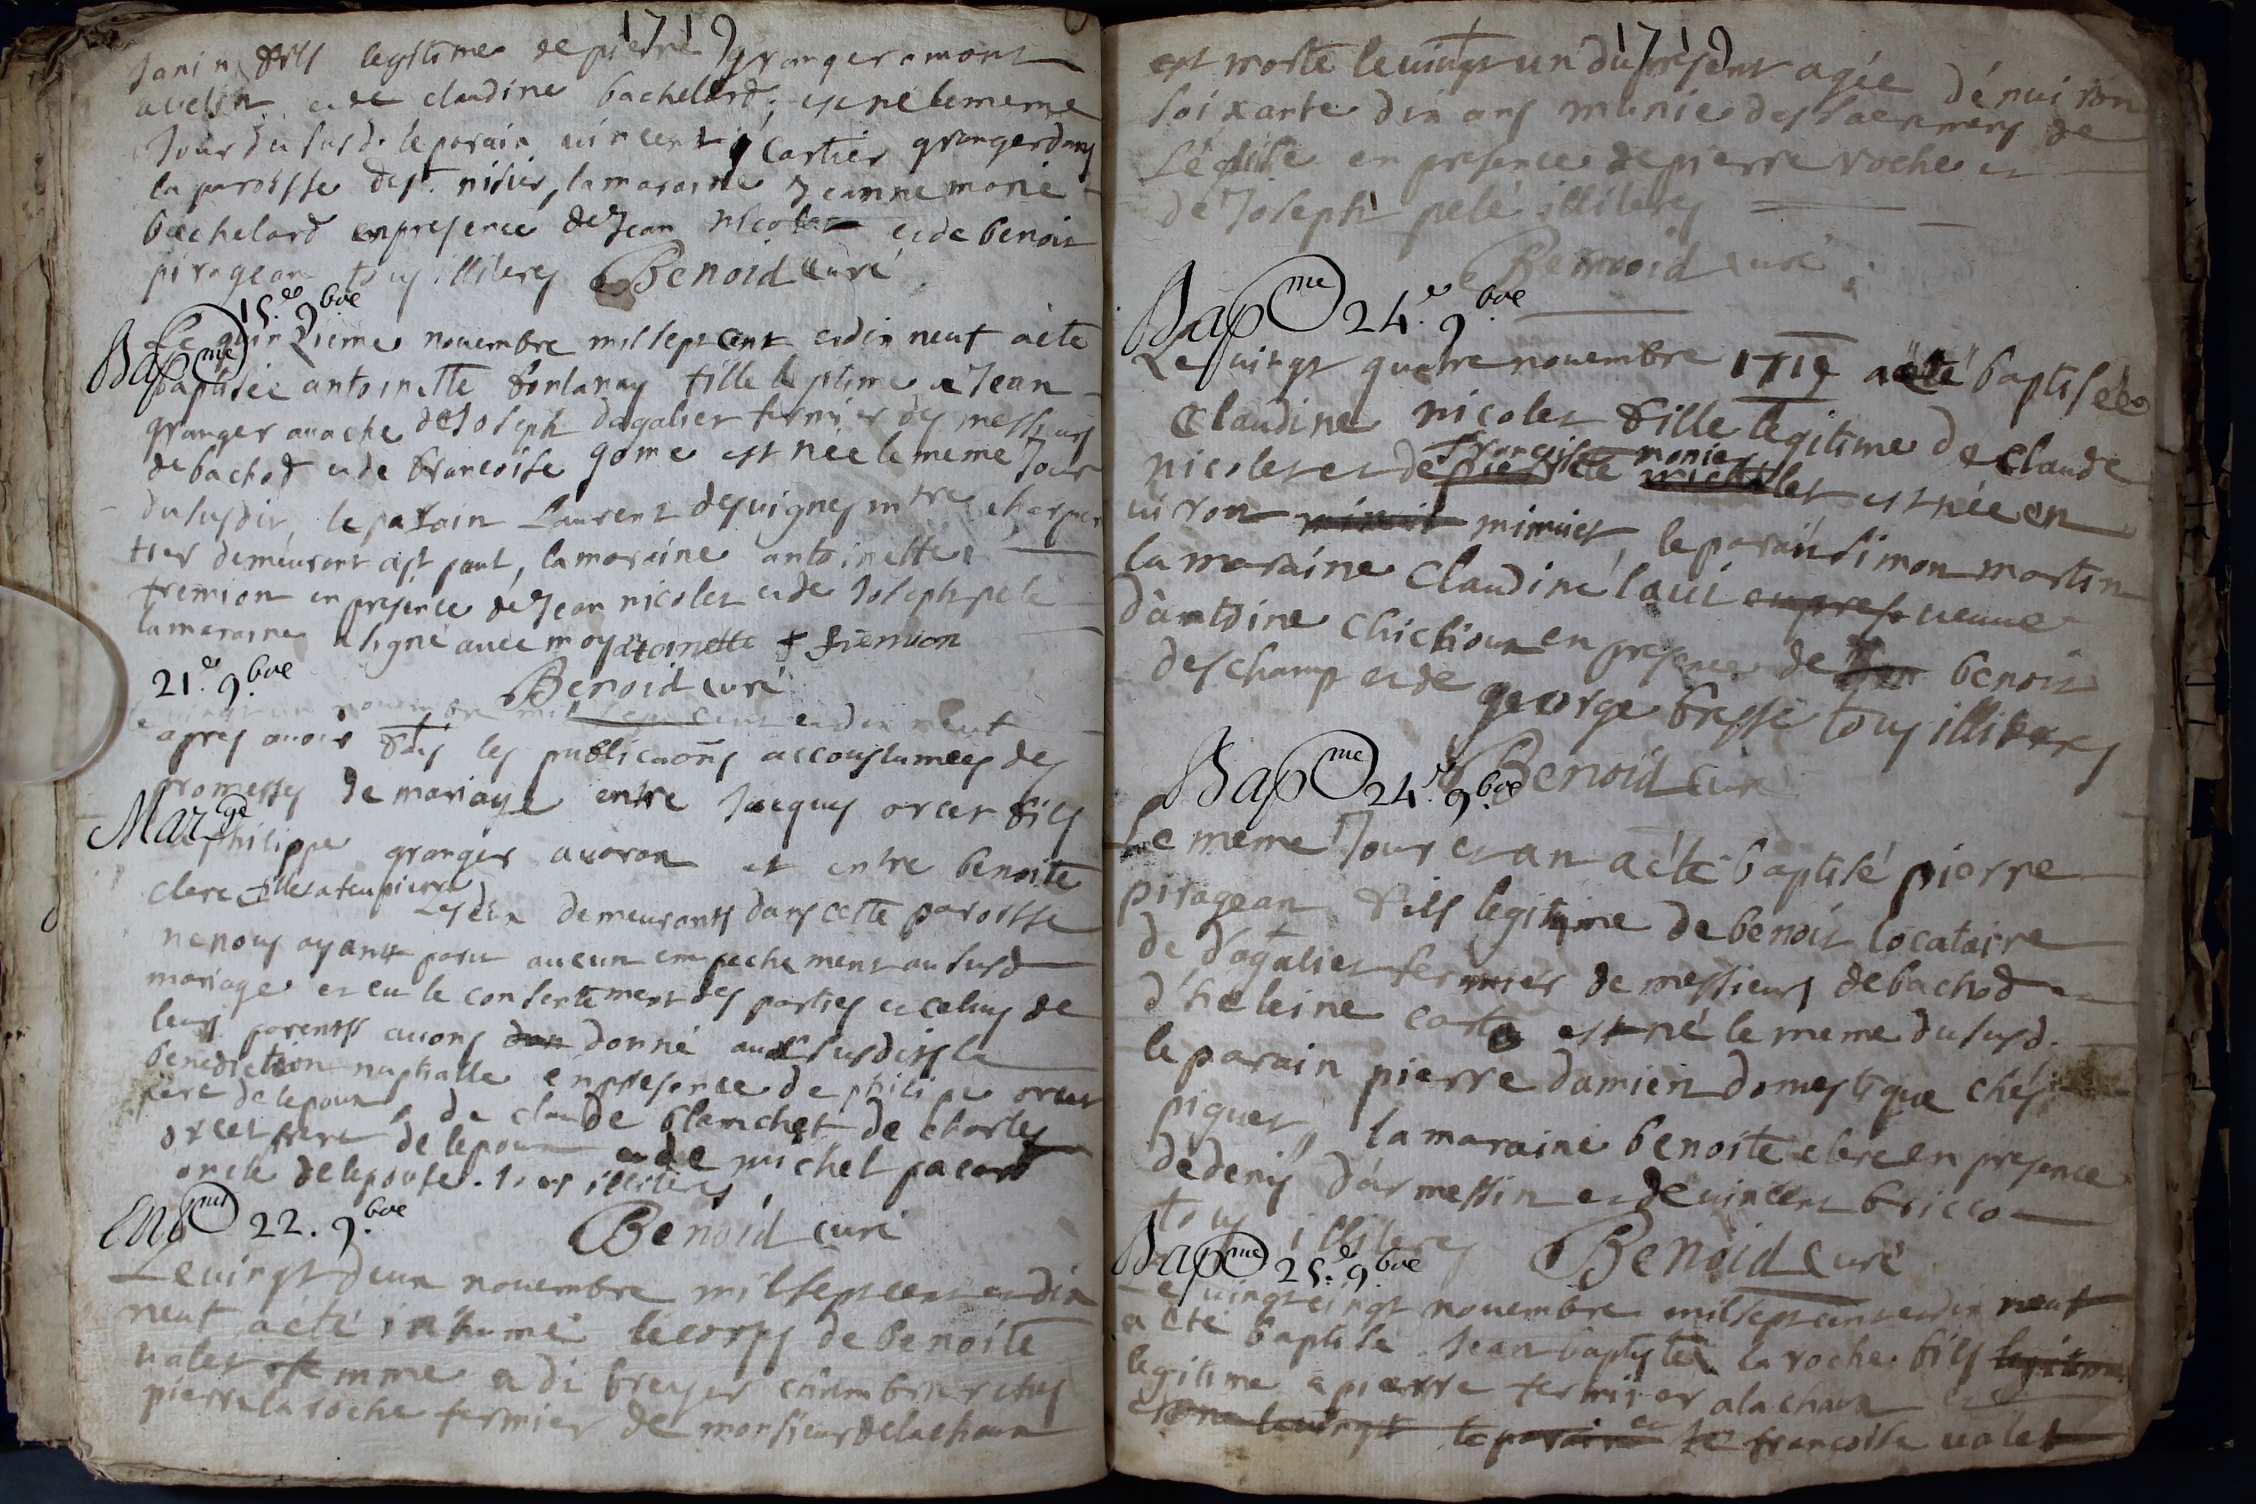 1719
Janin fils legitime de pierre granger a mont
avelin et de claudine bachelard, est né le meme
Jour du susd. le parain vincent Cartier granger dans
la paroisse de st. nisier, la maraine Jeanne marie
bachelard en presence de Jean nicolet et de benoit
piragean tous illiterés Benoid curé
15.e 9.bre
Bap.me
Le quinzieme novembre mil sept cent et dix neuf a été
baptisée antoinette fontanay fille legitime a Jean
granger a vache de Joseph dagalier fermier des messieurs
de bachod et de francoise gome est née le meme Jour
du susdit, le parain Laurent desvignes mtre charpen
tier demeurant a st paul, la maraine antoinette
fremion en presence de Jean nicolet et de Joseph pelé
la maraine a signé avec moy antoinette fremion
Benoid curé
21.e 9.bre
Le vingt un novembre mil sept cent et dix neuf
apres avoir fait les publicaons accoustumees des
promesses de mariage entre Jacques orcet fils
Mar.ge
Philippe granger a varan et entre benoite
clerc fille a feu pierre Les deux demeurants dans cette paroisse
ne nous ayant paru aucun empechement au susd
mariage et eu le consentement des parties et celuy de
leurs parents avons don donné aux susdits la
benediction nuptialle en presence de philipe orcet
pere de lepoux, de claude blanchet de charles
orcet frere de lepoux et de michel pacard
oncle de lepouse. tous illiterés
Benoid curé
Ent.mt 22. 9.bre
Le vingt deux novembre mil sept cent et dix
neuf a été inhumé le corps de benoite
valet femme a di
pierre la roche fermier de monsieur de la chaux
1719
est morte le vingt un du present agée d'environ
soixante dix ans munie des sacremens de
L'église en presence de pierre roche et
de Joseph pelé illiterés
Benoid curé
Bap.me 24.e 9.bre
Le vingt quatre novembre 1719 a été baptisée
Claudine nicolet fille legitime de Claude
nicolet et de francoise monie est née en
viron minuit minuit, le parain simon martin
la maraine Claudine laui en pres veuve
d'antoine chichoux en presence de benoit
deschamp et de george bresse tous illiterés
Benoid curé
Bap.me 24.e 9.bre
Le meme Jour et an a été baptisé pierre
piragean fils legitime de benoit locataire
de d'agalier fermier de messieurs de bachod et
d'heleine est né le meme du susd.
le parain pierre damien domestique chés
piquet, la maraine benoite clerc en presence
de denis d'armessin et de vincent bricco
tous illiterés Benoid curé
Bap.me 25.e 9.bre
Le vingt cinqt novembre mil sept cent et dix neuf
a été baptisé Jean baptiste la roche fils legitime
legitime a pierre fermier a la chaux et
et né le vingt le parain et de francoise valet